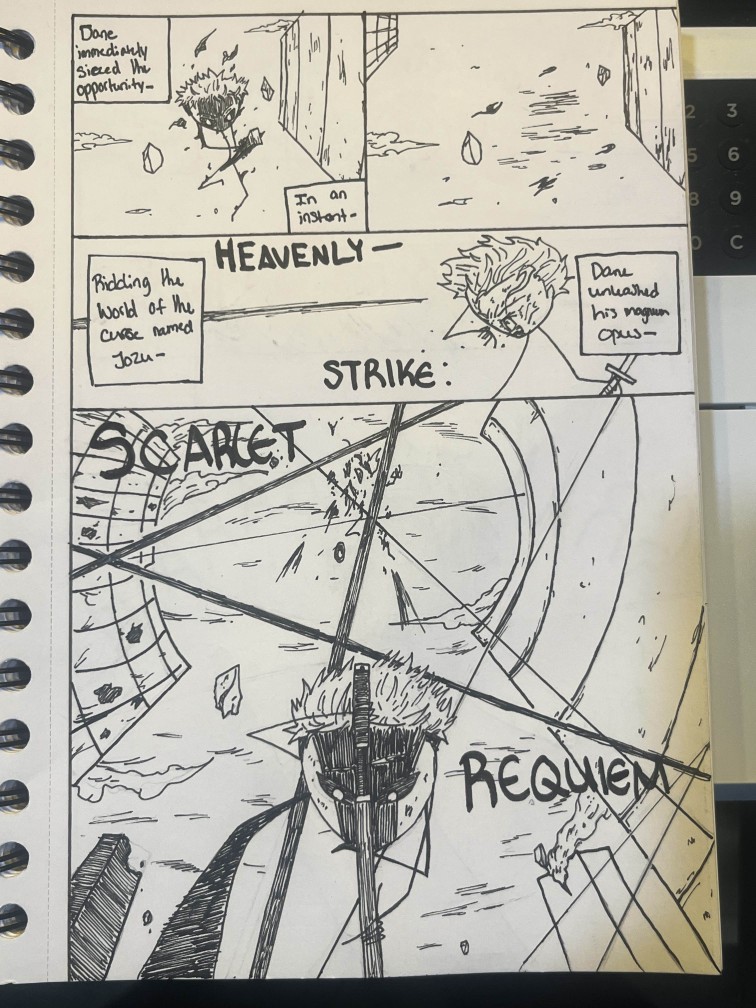 Dane
immediately
siezed the
opportunity-
In an
instant-
HEAVENLY-
Ridding the
World of the
curse named
Jozu-
Dane
unleashed
his magnum
opus-
STRIKE:
SCARLET
REQUIEM
2 3
5 6
8 9
0 C